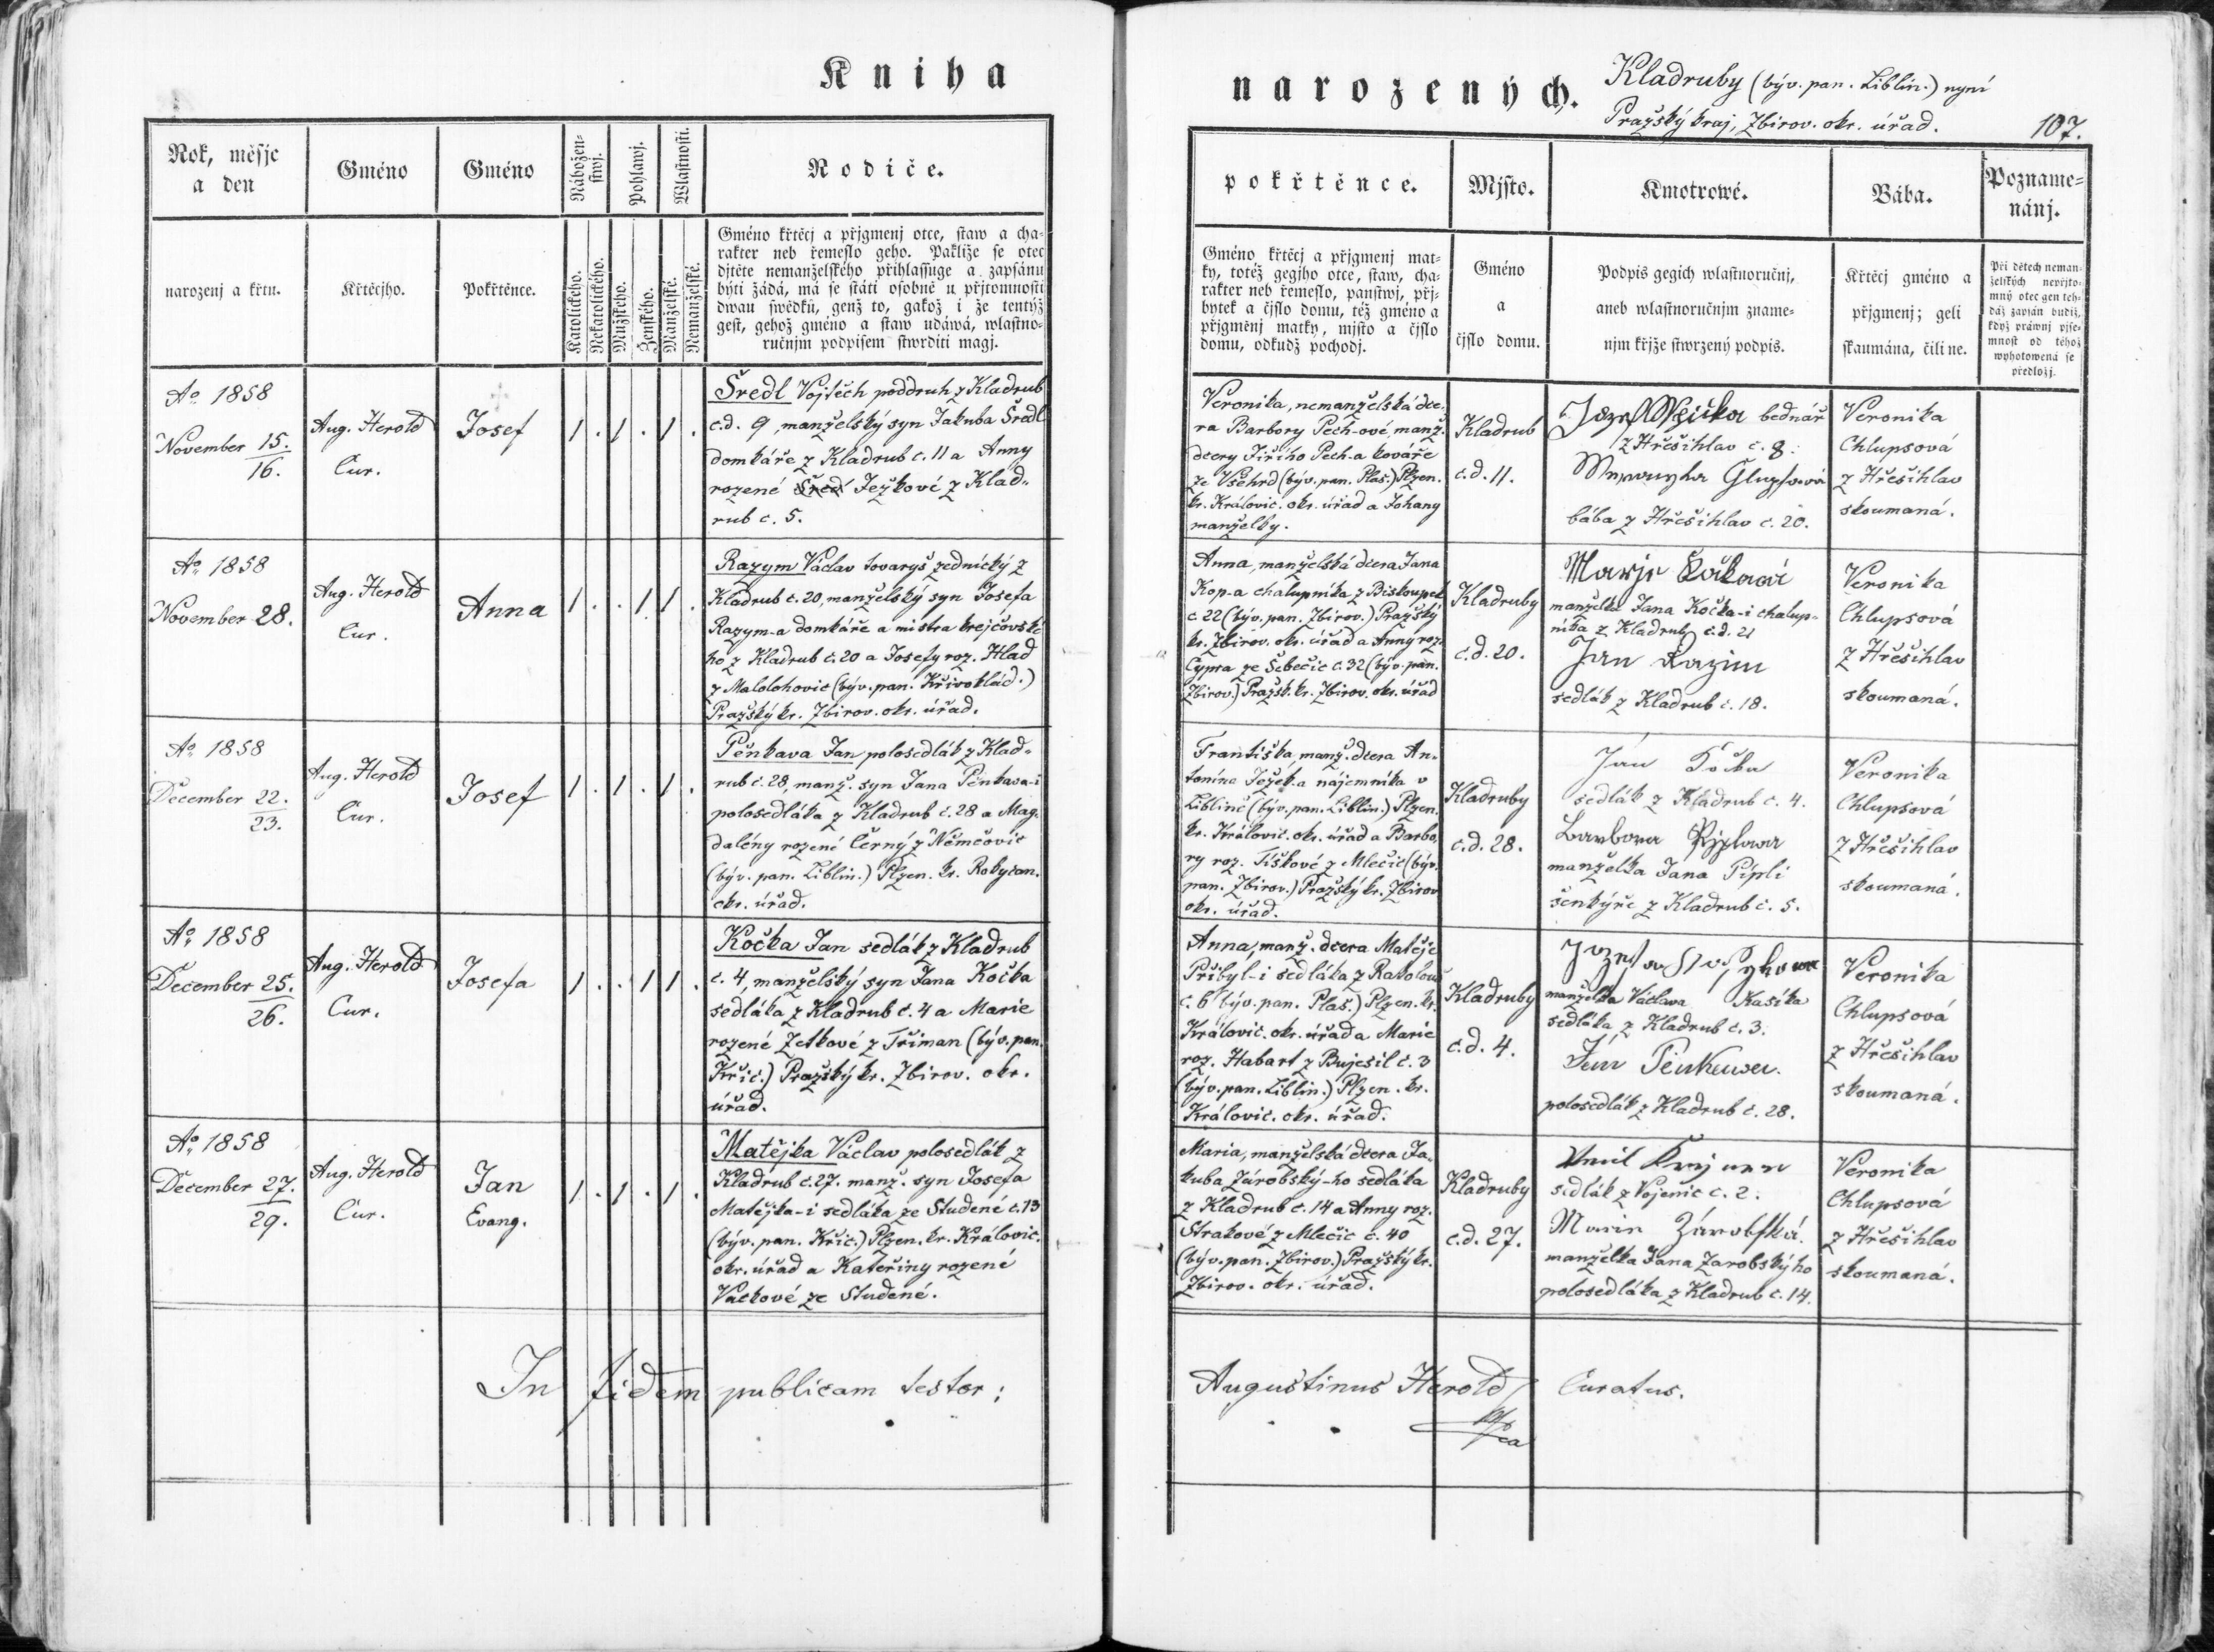 Kniha
narozených.
Kladruby (býv. pan. Liblín.) nyní
Pražský kraj, Zbirov. okr. úřad.
107.
Rok, měsjc
a den
Gméno
Gméno
Nábožen-
stwj.
Pohlawj.
Wlastnosti.
Rodiče.
narozenj a křtu.
Křtěcjho.
Pokřtěnce.
Katolického.
Nekatolického.
Mužského.
Ženského.
Manželské.
Nemanželské.
Gméno křtěcj a přjgmenj otce, staw a cha-
rakter neb řemeslo geho. Pakliže se otec
djtěte nemanželského přihlassuge a zapsánu
býti žádá, má se státi osobně u přjtomnosti
dwau swědků, genž to, gakož i že tentýž
gest, gehož gméno a staw udáwá, wlastno-
ručnjm podpisem stwrditi magj.
pokřtěnce.
Mjsto.
Kmotrowé.
Bába.
Pozname-
nánj.
Gméno křtěcj a přjgmenj mat-
ky, totéž gegjho otce, staw, cha-
rakter neb řemeslo, panstwj, přj-
bytek a čjslo domu, též gméno a
přjgměnj matky, mjsto a čjslo
domu, odkudž pochodj.
Gméno
a
čjslo domu.
Podpis gegich wlastnoručnj,
aneb wlastnoručnjm zname-
njm křjže stwrzený podpis.
Křtěcj gméno a
přjgmenj; geli
skaumána, čili ne.
Při dětech neman-
želských nepřjto-
mný otec gen teh-
dáž zapsán budiž,
když práwnj pjse-
mnost od téhož
wyhotowená se
předložj.
Ao 1858
November 15.
16.
Aug. Herold
Cur.
Josef
1 . 1 . 1 .
Šredl Vojtěch poddruh z Kladrub
č.d. 9, manželský syn Jakuba Šredl
domkáře z Kladrub č. 11 a Anny
rozené Ježkové z Klad-
rub č. 5.
Veronika, nemanželská dce-
ra Barbory Pech-ové, manž.
dcery Jiřího Pech-a kováře
ze Všehrd (býv. pan. Plas.) Plzen.
kr. Královic. okr. úřad a Johany
manželky.
Kladrub
č.d. 11.
Jozef bednář
z Hřešihlav č. 8.
bába z Hřešihlav č. 20.
Veronika
Chlupsová
z Hřešihlav
skoumaná.
Ao 1858
November 28.
Aug. Herold
Cur.
Anna
1 . . 1 1 .
Razym Václav tovaryš zednický z
Kladrub č. 20, manželský syn Josefa
Razym-a domkáře a mistra krejčovské-
ho z Kladrub č. 20 a Josefy roz. Hlad
z Malolohovic (býv. pan. Křivoklád.)
Pražský kr. Zbirov. okr. úřad.
Anna, manželská dcera Jana
Kop-a chalupníka z Biskoupek
č. 22 (býv. pan. Zbirov.) Pražský
kr. Zbirov. okr. úřad a Anny roz.
Cypra ze Šebečic č. 32 (býv. pan.
Zbirov.) Pražsk. kr. Zbirov. okr. úřad
Kladruby
č.d. 20.
Marje
manželka Jana Kočka-i chalup-
níka z Kladrub č.d. 21
Jan Razim
sedlák z Kladrub č. 18.
Veronika
Chlupsová
z Hřešihlav
skoumaná.
Ao 1858
December 22.
23.
Aug. Herold
Cur.
Josef
1 . 1 . 1 .
Pěnkava Jan polosedlák z Klad-
rub č. 28, manž. syn Jana Pěnkava-i
polosedláka z Kladrub č. 28 a Mag-
dalény rozené Černý z Němčovic
(býv. pan. Liblin.) Plzen. kr. Rokycan.
okr. úřad.
Františka, manž. dcera An-
tonína Ježek-a nájemníka v
Liblíně (býv. pan. Liblin.) Plzen.
kr. Královic. okr. úřad a Barbo-
ry roz. Tíškové z Mlečic (býv.
pan. Zbirov.) Pražský kr. Zbirov
okr. úřad.
Kladruby
č.d. 28.
Ján Kočka
sedlák z Kladrub č. 4.
Barbora
manželka Jana Pípli
šenkýře z Kladrub č. 5.
Veronika
Chlupsová
z Hřešihlav
skoumaná.
Ao 1858
December 25.
26.
Aug. Herold
Cur.
Josefa
1 . . 1 1 .
Kočka Jan sedlák z Kladrub
č. 4, manželský syn Jana Kočka
sedláka z Kladrub č. 4 a Marie
rozené Zetkové z Třiman (býv. pan.
Křič.) Pražský kr. Zbirov. okr.
úřad.
Anna, manž. dcera Matěje
Přibyl-i sedláka z Rakolous
č. 6 býv. pan. Plas.) Plzen. kr.
Královic. okr. úřad a Marie
roz. Habart z Bujesil č. 3
(býv. pan. Liblin.) Plzen. kr.
Královic. okr. úřad.
Kladruby
č.d. 4.
manželka Václava Kasíka
sedláka z Kladrub č. 3.
Ján Pěnkawa.
polosedlák z Kladrub č. 28.
Veronika
Chlupsová
z Hřešihlav
skoumaná.
Ao 1858
December 27.
29.
Aug. Herold
Cur.
Jan
Evang.
1 . 1 . 1 .
Matějka Václav polosedlák z
Kladrub č. 27. manž. syn Josefa
Matějka-i sedláka ze Studené č. 13
(býv. pan. Křič.) Plzen. kr. Královic.
okr. úřad a Kateřiny rozené
Vackové ze Studené.
Maria, manželská dcera Ja-
kuba Zárobský-ho sedláka
z Kladrub č. 14 a Anny roz.
Strakové z Mlečic č. 40
(býv. pan. Zbirov.) Pražský kr.
Zbirov. okr. úřad.
Kladruby
č.d. 27.
sedlák z Vojenic č. 2.
Marie Zárobská.
manželka Jana Zarobskýho
polosedláka z Kladrub č. 14.
Veronika
Chlupsová
z Hřešihlav
skoumaná.
In fidem publicam testor:
Augustinus Herold Curatus.